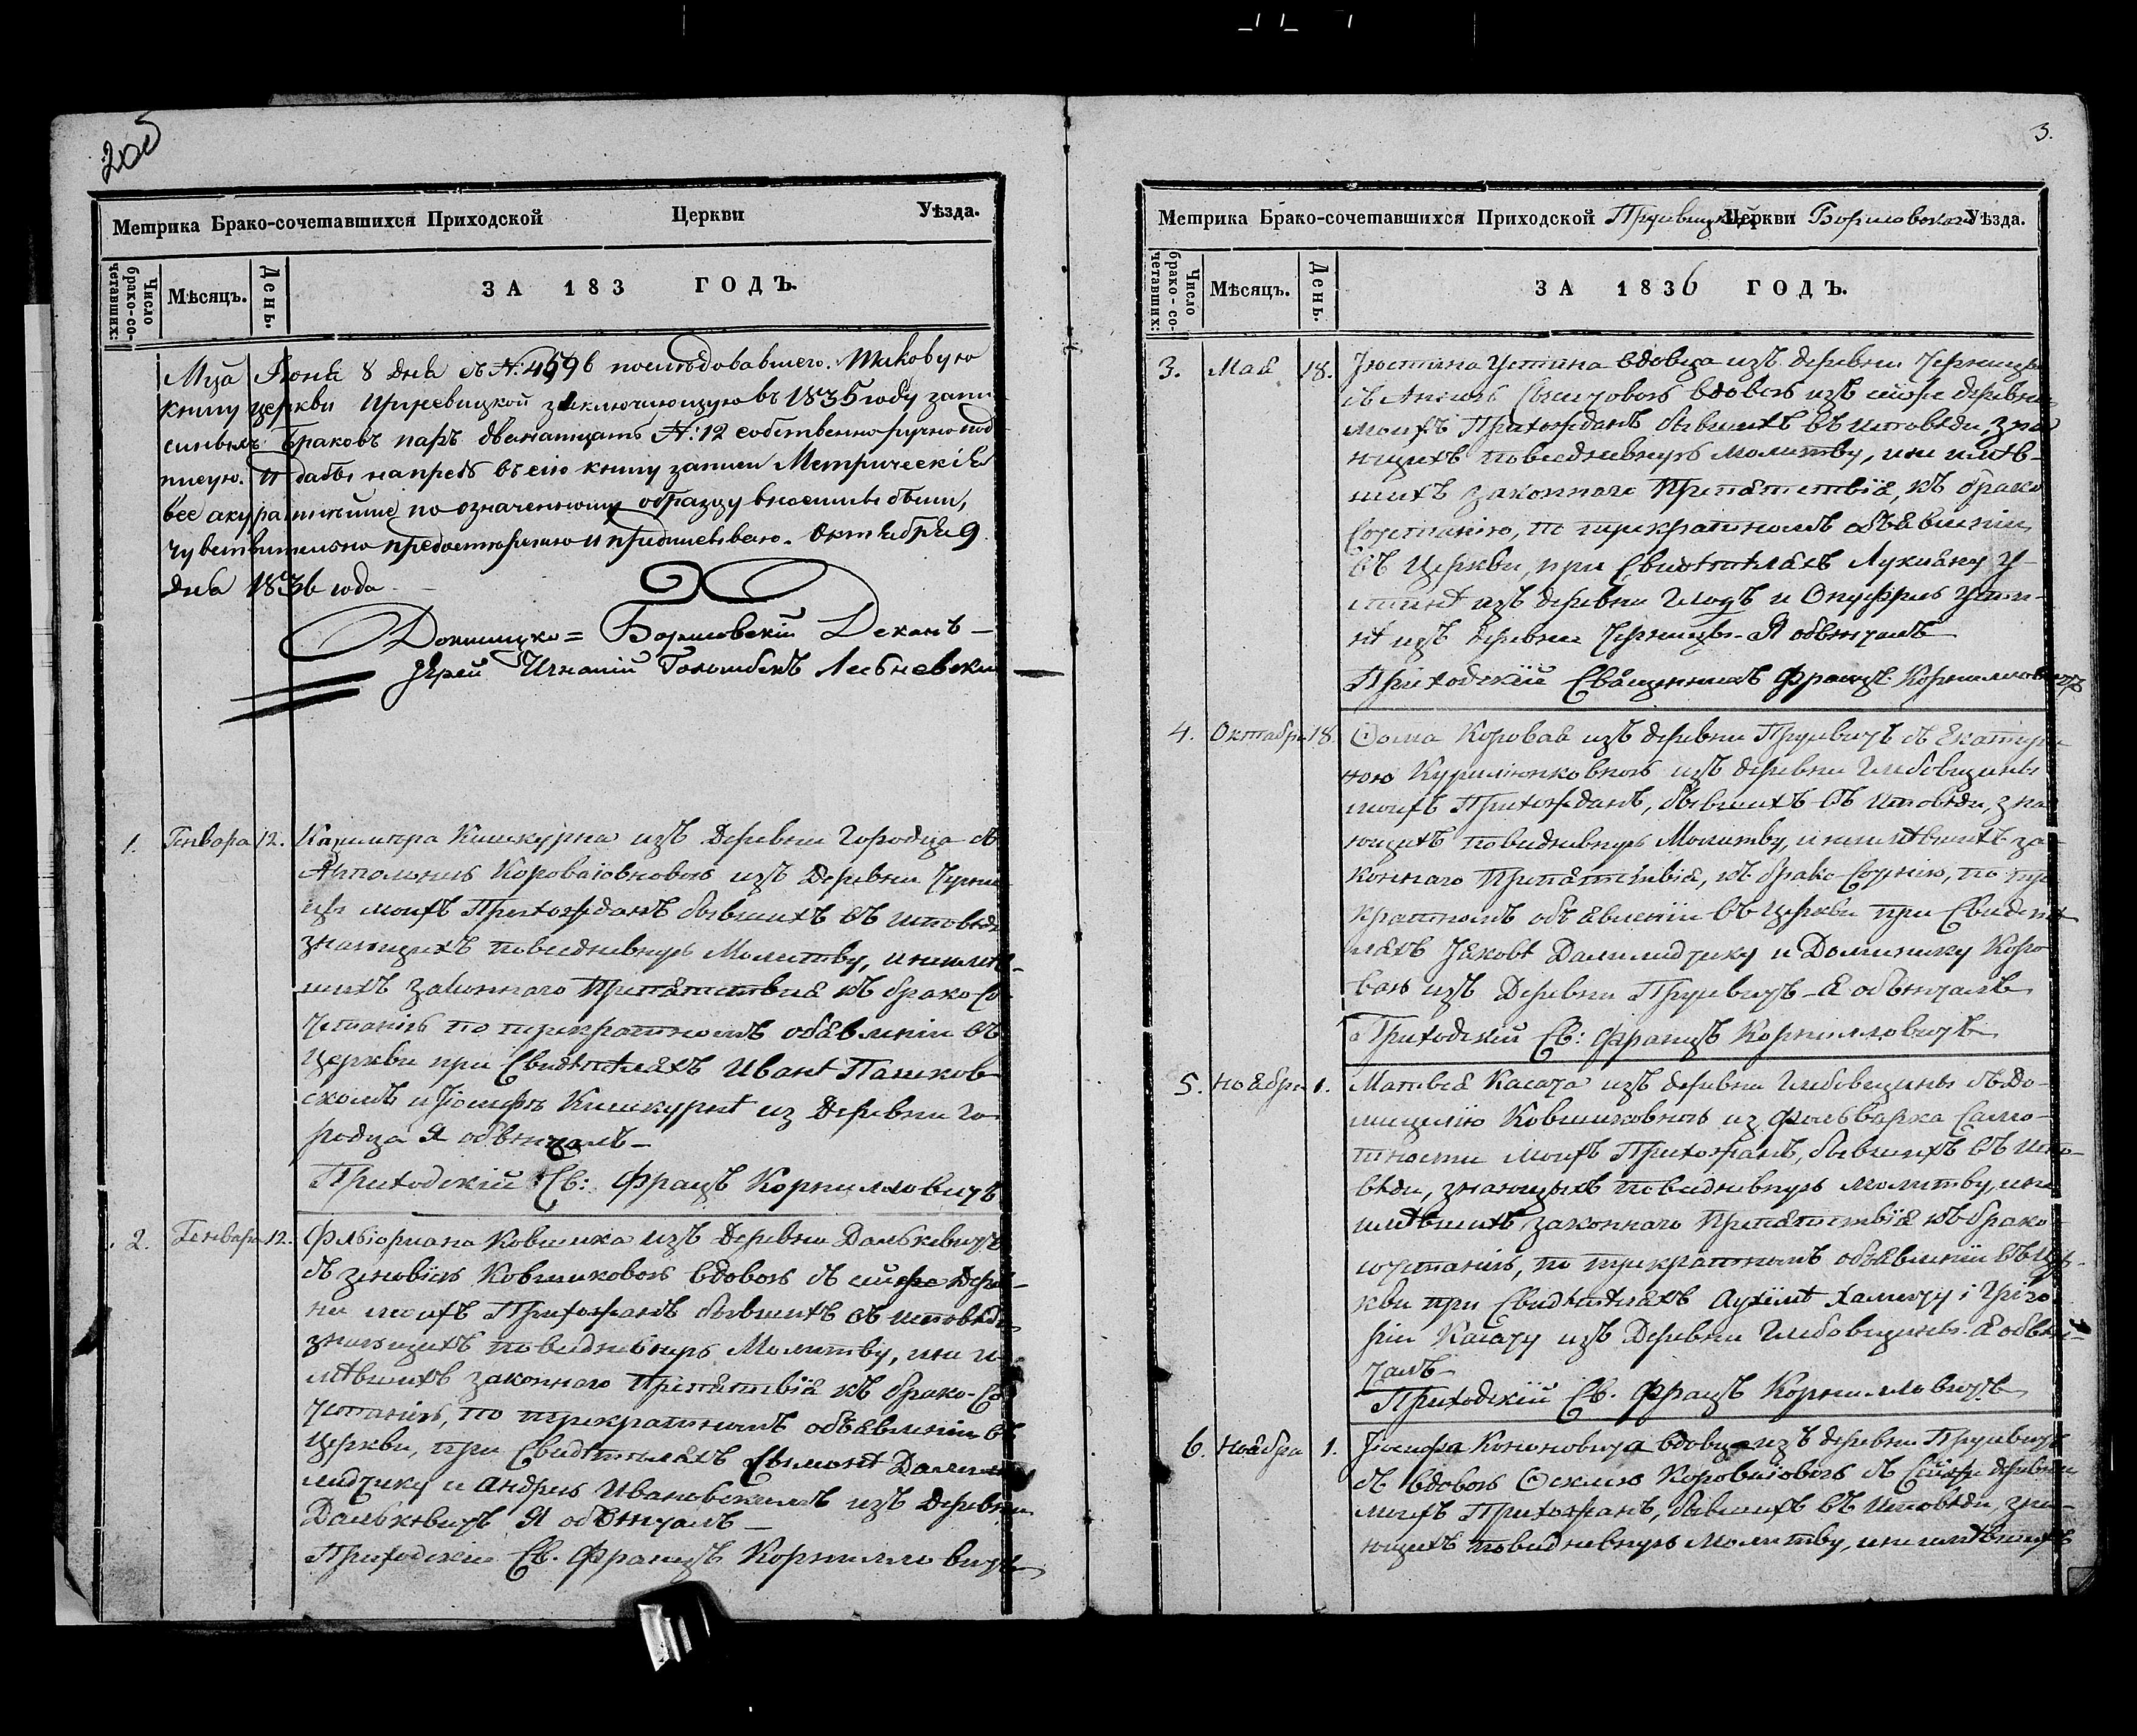 205
Метрика Брако-сочетавшихся Приходской Церкви Уѣзда.
Число брако-сочетавших:
Мѣсяцъ.
День.
ЗА 183 ГОДЪ.
Мца Іюня 8 дня съ №: 4596 последовавшего. Таковую
книгу церкви заключающую въ 1835 году запи
Браковъ паръ двенатцать №: 12 собственноручно под
писую. И дабы напредъ въ сію книгу записи Метрическіе
все акуратнейше по означенному образцу вносимы были,
чувствительно предостерегаю и предписываю. Октября 9
дня 1836 года
Докшицко= Борисовскій Деканъ —
Іерей Игнатій
1. Генваря 12. Казимѣра Кишкурна изъ Деревни Городца съ
Аполонію Короваіовновою изъ Деревни Черни
цы моихъ Прихожданъ бывшихъ въ исповѣди
знающихъ повседневную Молитву, и неимѣв-
шихъ законнаго Препятствія къ брако-Со
четанію по трикратномъ объявленіи въ
Церкви при Свидѣтеляхъ Иванѣ Пашков
скомъ и Іосифѣ Кишкурнѣ из Деревни Го
родца Я обвенчалъ —
Приходскій Св: Францъ Корнилловичъ
2. Генваря 12. Фльоріана Ковшика изъ Деревни Далькевичъ
съ Зеновіею Ковшиковою вдовою съ сейже Дерев-
ни моихъ Прихожанъ бывшихъ въ исповѣди
знающихъ повседневную Молитву, и не и-
мѣвшихъ законнаго Препятствія къ брако-Со
четанію, по трикратномъ объявленіи въ
Церкви, при Свидѣтеляхъ Сымонѣ Дали
лидчику и Андрею Ивановскимъ изъ Деревни
Далькевичъ Я обвенчалъ —
Приходскій Св. Францъ Корнилловичъ
3.
Метрика Брако-сочетавшихся Приходской Церкви Борисовскаго Уѣзда.
Число брако-сочетавших:
Мѣсяцъ.
День.
ЗА 1836 ГОДЪ.
3. Май 18. Іюстина Устина вдовца изъ деревни Черницы
съ вдовою изъ сейже деревни
моихъ Прихожданъ бывшихъ въ исповѣди, зна
ющихъ повседневную молитву, и не имѣв-
шихъ законнаго Препятствія, къ брако
Сочетанію, по трикратномъ объявленіи
въ Церкви, при Свидѣтеляхъ Лукіану У-
стинѣ изъ деревни и Онуфрію Усти-
нѣ изъ деревни Черницы - Я обвенчалъ
Приходскій Священникъ Францъ Корнилловичъ
4. Октября 18. Ѳома Коровая изъ деревни Пруевичъ съ Екатери
ною Курилюнковною изъ деревни Глебовщины
моихъ Прихожданъ, бывшихъ въ исповѣди, зна
ющихъ повседневную Молитву, и неимѣвшихъ за
коннаго Препятствія, къ брако-Соч‌нію, по три
кратномъ объявленіи въ Церкви при Свидете
ляхъ Іаковѣ Далилидчику и Доминику Коро
ваю изъ Деревни Пруевичъ - Я обвенчалъ
Приходскій Св: Францъ Корнилловичъ
5. Ноября 1. Матвея Касача изъ деревни Глебовщины съ До-
мицелію Ковшиковною из Фольварка Само-
тности моихъ Прихожанъ, бывшихъ въ испо-
вѣди, знающихъ повседневную молитву, и не
имѣвшихъ законнаго Препятствія къ брако-
сочтанію, по трикратномъ объявленіи въ Цер-
кви при Свидѣтеляхъ и Григо
рію Касачу изъ Деревни Глебовщины. Я обвен-
чалъ —
Приходскій Св. Францъ Корнилловичъ
6. Ноября 1. Іосифа Кононовича вдовца изъ деревни Пруевичъ
съ вдовою Ѳеклою Короваіовою съ Сейже деревни
моихъ Прихожанъ, бывшихъ въ исповѣди, зна-
ющихъ повседневную молитву, и не имѣвшихъ